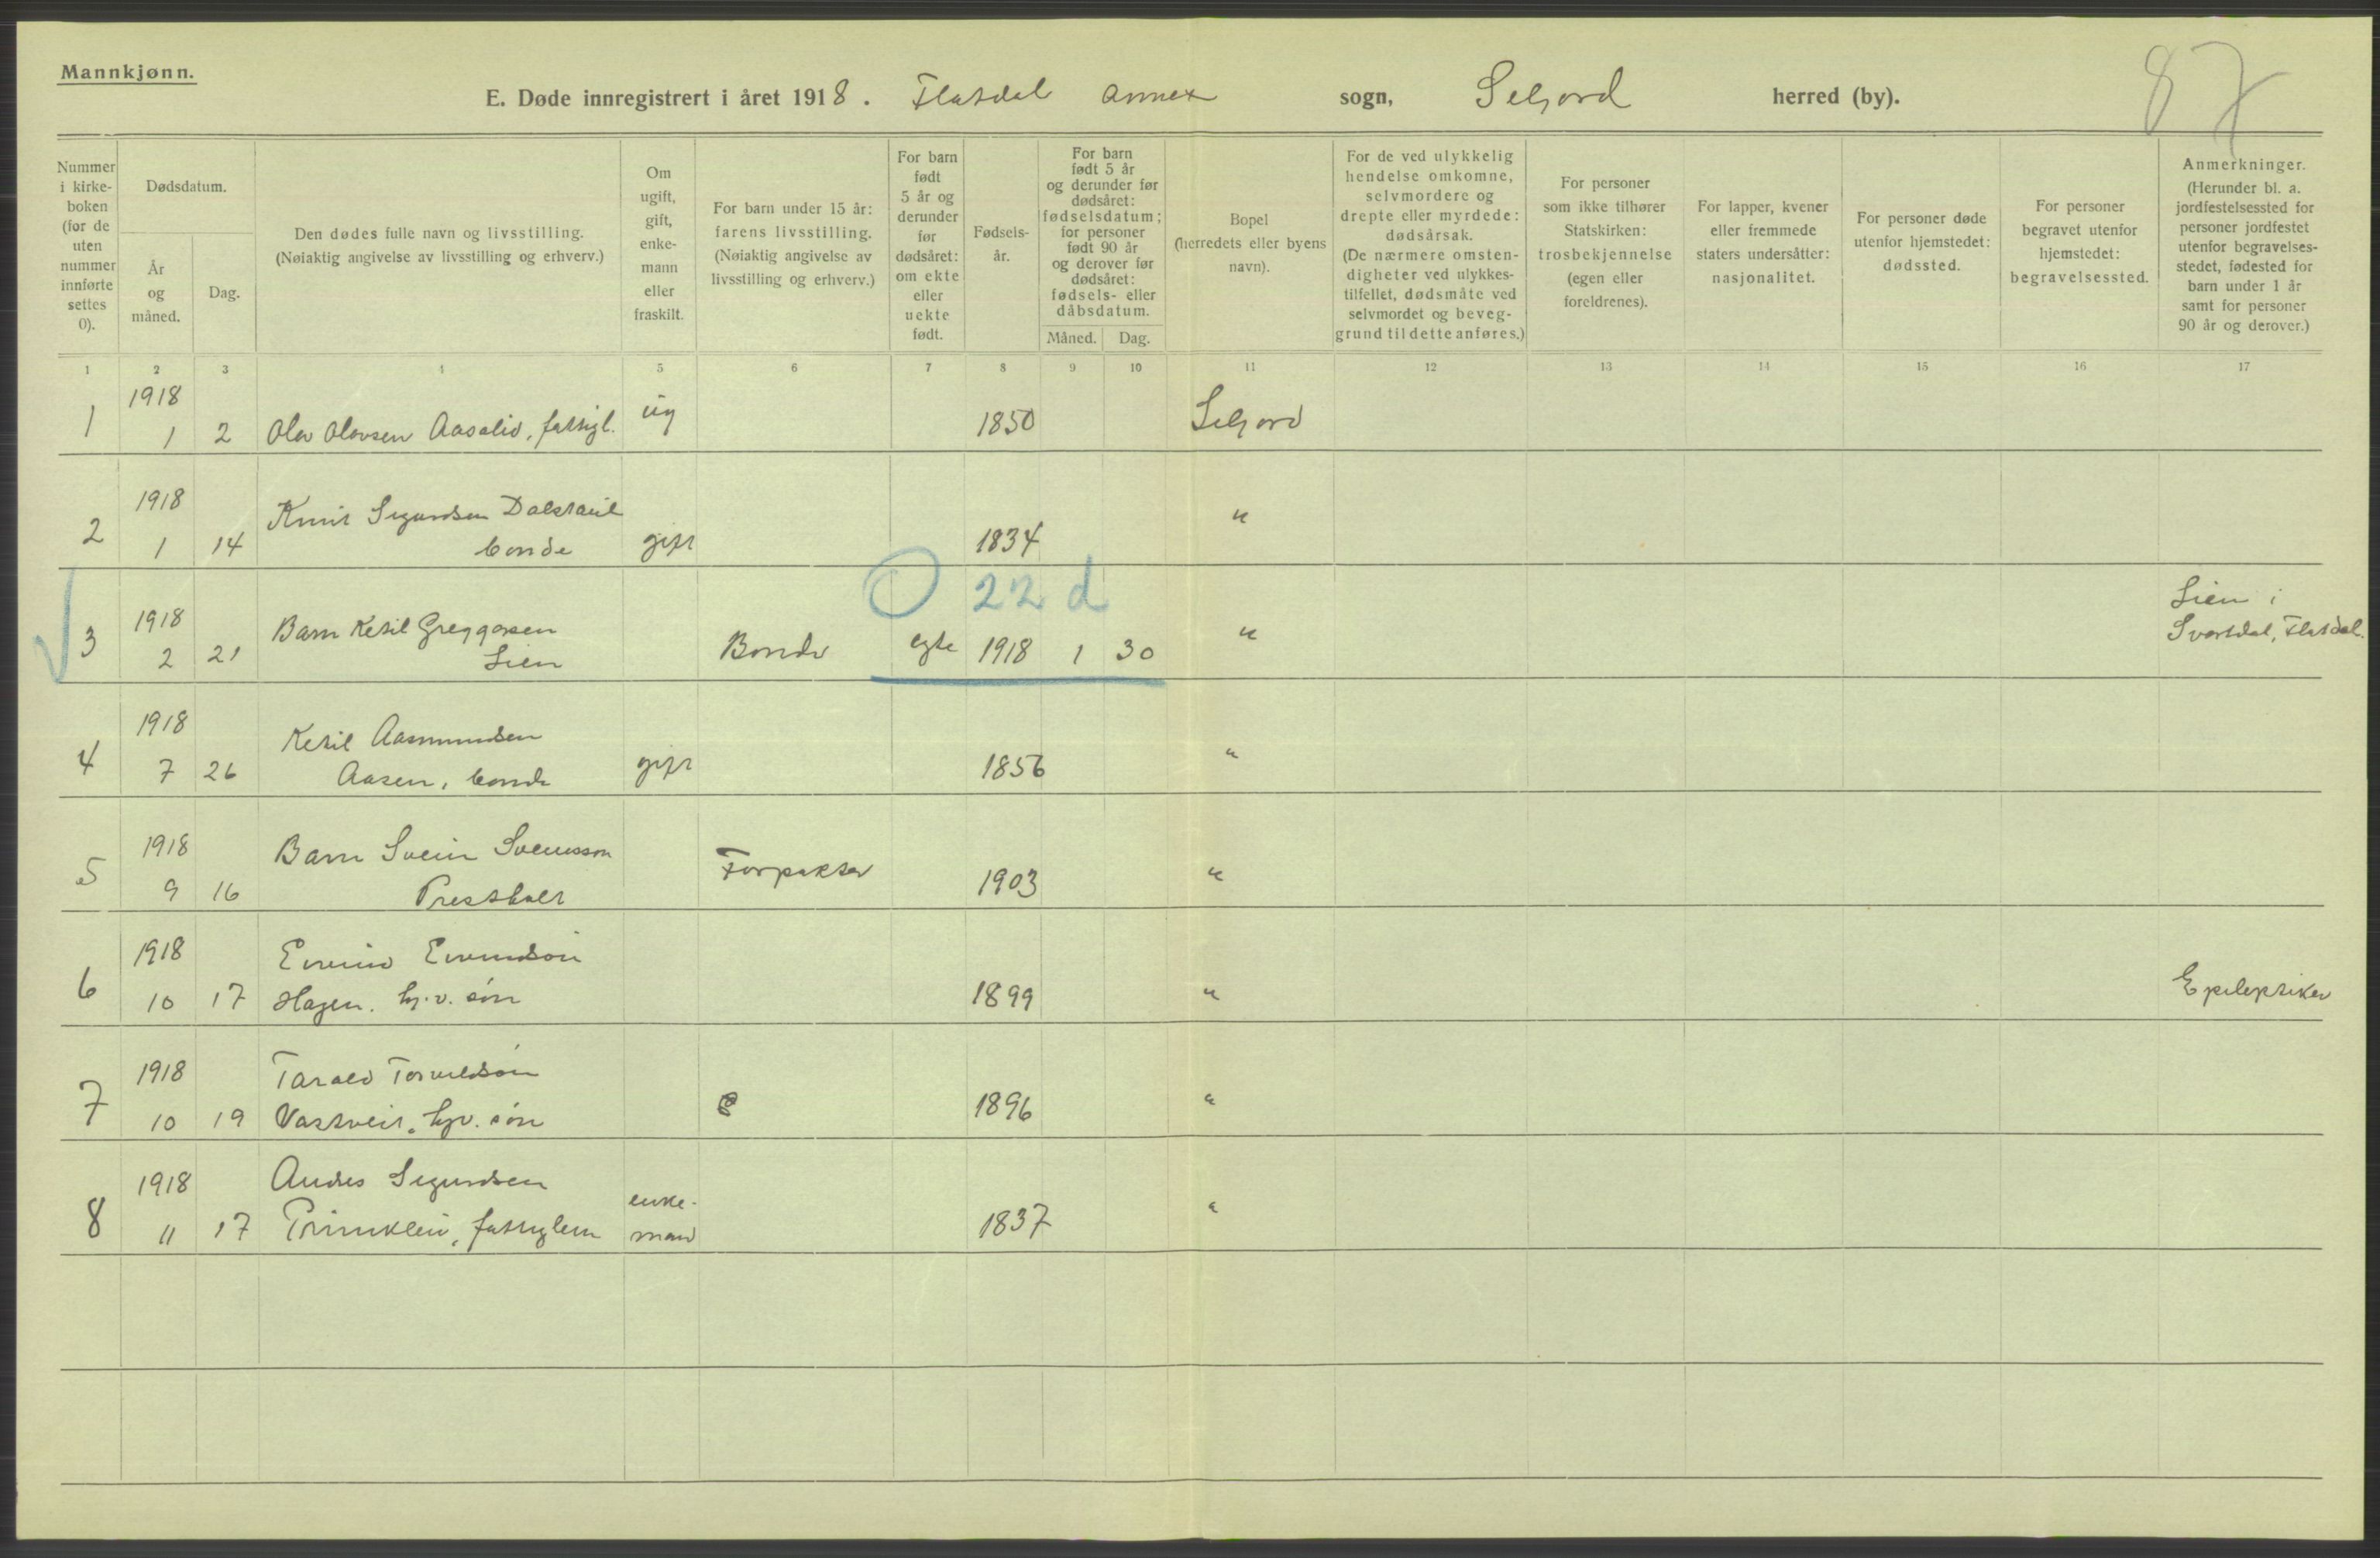 Mannkjønn.
87
E. Døde innregistrert i året 1918. Flatdal annex sogn, Seljord herred (by).
Nummer i kirke- boken (for de uten nummer innførte settes 0).
Dødsdatum.
År og måned.
Dag.
Den dødes fulle navn og livsstilling. (Nøiaktig angivelse av livsstilling og erhverv.)
Om ugift, gift, enke- mann eller fraskilt.
For barn under 15 år: farens livsstilling. (Nøiaktig angivelse av livsstilling og erhverv.)
For barn født 5 år og derunder før dødsåret: om ekte eller uekte født.
Fødsels- år.
For barn født 5 år og derunder før dødsåret: fødselsdatum; for personer født 90 år og derover før dødsåret: fødsels- eller dåbsdatum.
Måned. Dag.
Bopel (herredets eller byens navn).
For de ved ulykkelig hendelse omkomne, selvmordere og drepte eller myrdede: dødsårsak. (De nærmere omsten- digheter ved ulykkes- tilfellet, dødsmåte ved selvmordet og beveg- grund til dette anføres.)
For personer som ikke tilhører Statskirken: trosbekjennelse (egen eller foreldrenes).
For lapper, kvener eller fremmede staters undersåtter: nasjonalitet.
For personer døde utenfor hjemstedet: dødssted.
For personer begravet utenfor hjemstedet: begravelsessted.
Anmerkninger. (Herunder bl. a. jordfestelsessted for personer jordfestet utenfor begravelses- stedet, fødested for barn under 1 år samt for personer 90 år og derover.)
1 2 3 4 5 6 7 8 9 10 11 12 13 14 15 16 17
1918
1 1 2 Olav Olavsen Aasalid, fattigl. ug 1850 Seljord
1918 Knut Sigurdsen Dalstaul "
2 1 14 bonde gift 1834
O 22 d
1918 Barn Ketil Greggarsen " Lien i
3 2 21 Lien Bonde egte 1918 1 30 Svartdal, Flatdal.
1918 Ketil Aasmundsen
4 7 26 Aasen, bonde gift 1856 "
1918 Barn Svein Sveinsson
5 9 16 Prestholt Forpakter 1903 "
1918 Eivind Eivindson
6 10 17 Hagen. hj.v. søn 1899 " Epileptiker
1918 Tarald
7 10 19 Vastveit, hjv. søn 1896 "
1918 Andres Sigurdsen enke-
8 11 17 fattiglem mand 1837 "